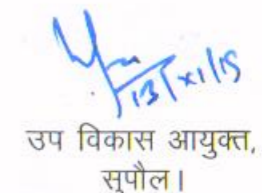 13/XI/15
उप विकास आयुक्त,
सुपौल।